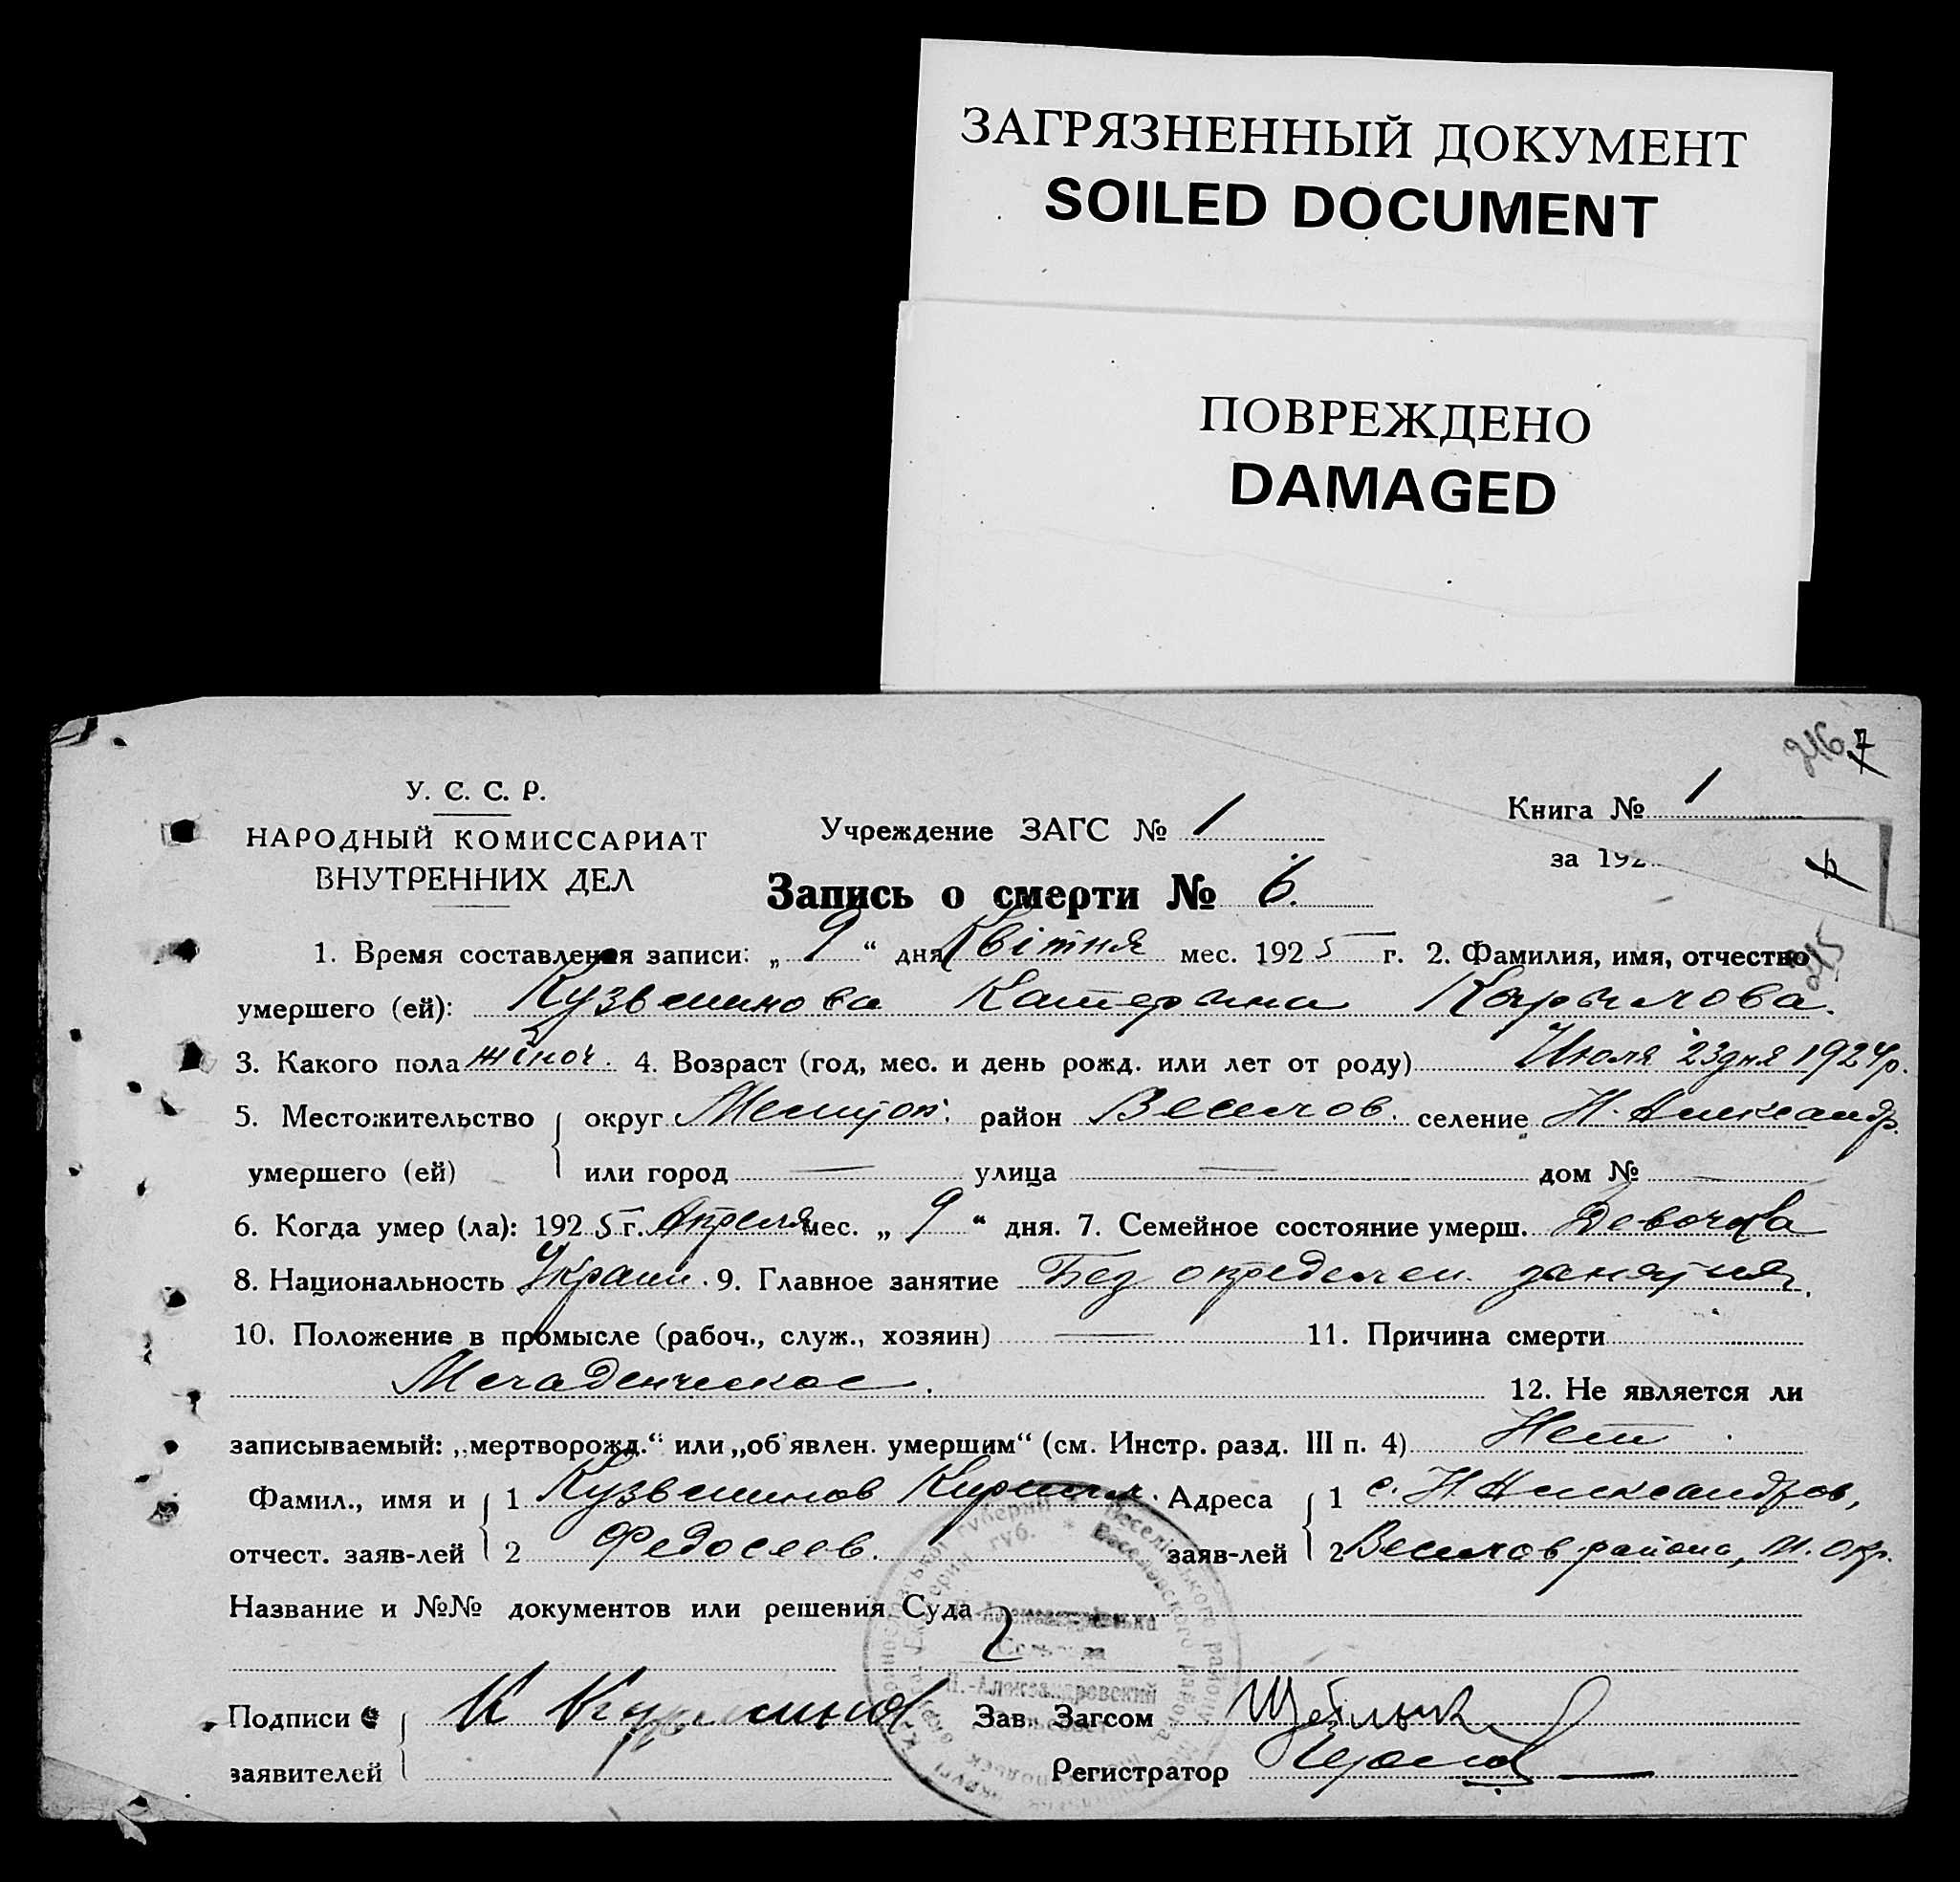 ЗАГРЯЗНЕННЫЙ ДОКУМЕНТ
SOILED DOCUMENT
ПОВРЕЖДЕНО
DAMAGED
216 7
У. С. С. Р.
НАРОДНЫЙ КОМИССАРИАТ
ВНУТРЕННИХ ДЕЛ
Учреждение ЗАГС № 1
Книга № 1
за 192
Запись о смерти № 6.
1. Время составления записи: „ 9 “ дня Квітня мес. 1925 г. 2. Фамилия, имя, отчество
умершего (ей): Кузвешинова Катерина Кырылова.
3. Какого пола жіноч. 4. Возраст (год, мес. и день рожд. или лет от роду) Июля 23 дня 1924 р.
5. Местожительство округ Мелитоп. район Веселов. селение Н. Александр.
умершего (ей) или город — улица — дом № —
6. Когда умер (ла): 1925 г. Апреля мес. „ 9 “ дня. 7. Семейное состояние умерш. Девочка
8. Национальность Украин. 9. Главное занятие Без определен. занятия.
10. Положение в промысле (рабоч., служ., хозяин) — 11. Причина смерти
Младенческое.
12. Не является ли
записываемый: „мертворожд.“ или „об'явлен. умершим“ (см. Инстр. разд. III п. 4) Нет.
Фамил., имя и 1 Кузвешинов Кирилл. Адреса 1 с. Н Александров,
отчест. заяв-лей 2 Федосеев. заяв-лей 2 Веселов района, М. Окр.
Название и №№ документов или решения Суда
Подписи Зав. Загсом
заявителей Регистратор
Н.-Александровский